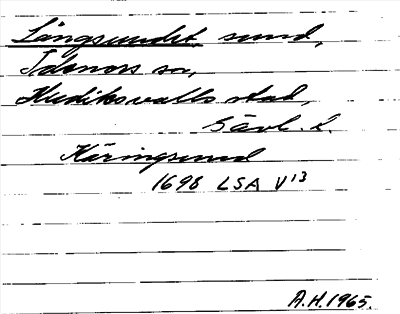 Långsundet sund,
Idenors sn,
Hudiksvalls stad,
Gävl. l.
Käringsund
1698 LSA V 13
A.H. 1965.